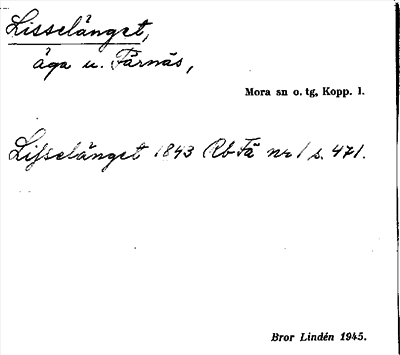 Lisselänget,
äga u. Färnäs,
Mora sn o. tg, Kopp. l.
Lisselänget 1843 Rb Fä nr 1 s. 471.
Bror Lindén 1945.